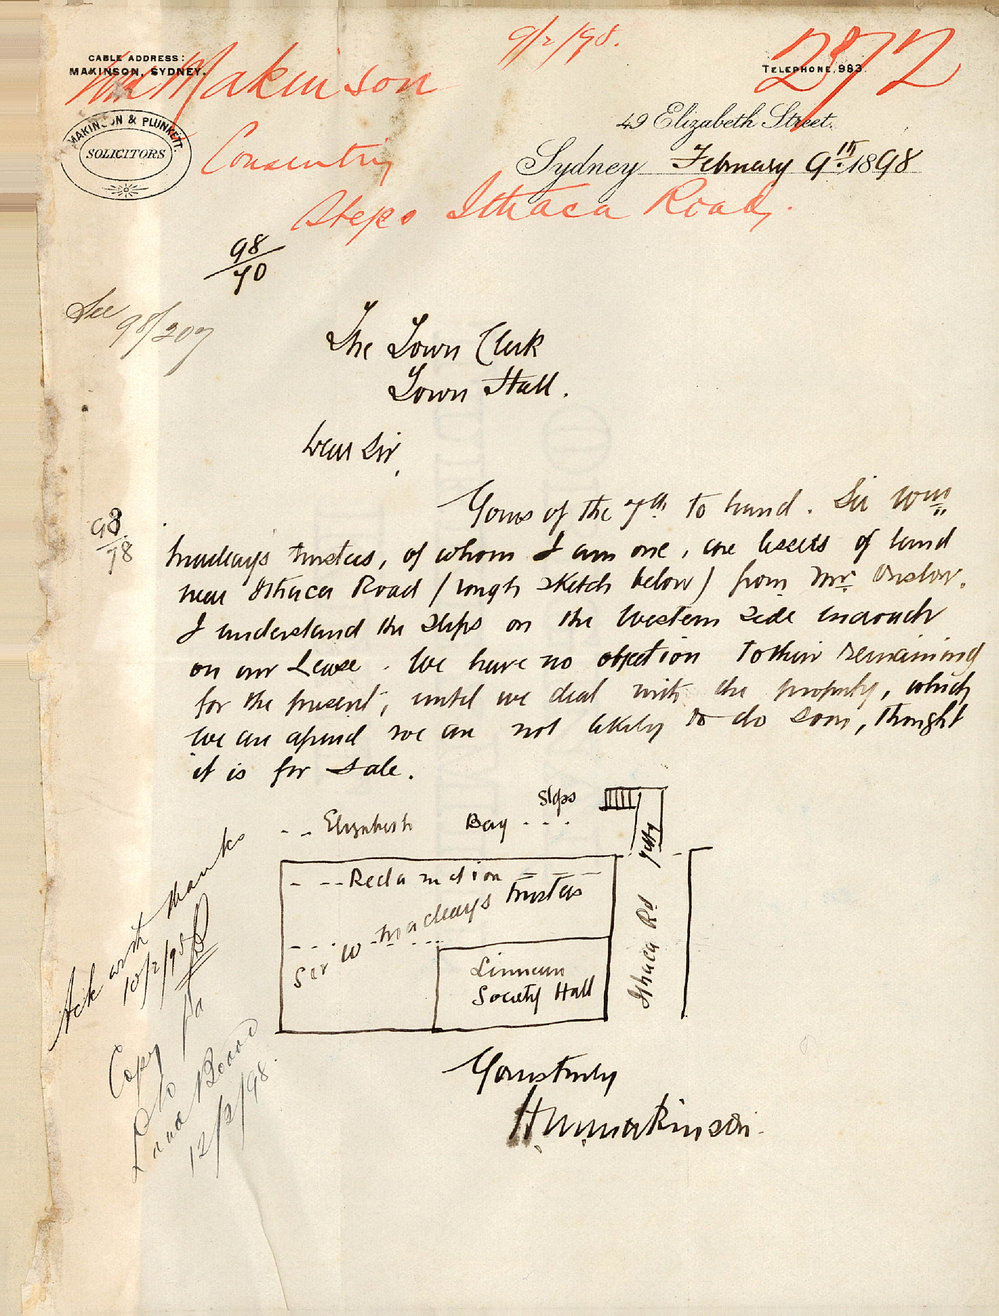 9/2/98.
272
CABLE ADDRESS:
MAKINSON, SYDNEY.
TELEPHONE, 983.
Makinson
49 Elizabeth Street.
MAKINSON & PLUNKETT.
SOLICITORS
Consenting
Sydney February 9th 1898
Steps Ithaca Road.
98/70
See 98/207
The Town Clerk
Town Hall.
Dear Sir,
98/78
Yours of the 7th to hand. Sir Wm
Macleay's trustees, of whom I am one, are lessees of land
near Ithaca Road (rough sketch below) from Mr. Onslow.
I understand the steps on the Western side incroach
on our Lease. We have no objection to their remaining
for the present, until we deal with the property, which
we are afraid we are not likely to do soon, though
it is for sale.
Steps
-- Elizabeth Bay ---
Jetty
--- Reclamation ---
Sir W Macleay's trustees
Linnean
Society Hall
Ithaca Rd
Ack with thanks
10/2/98
Copy
to
Land Board
12/2/98
Yours truly
H.M. Makinson.